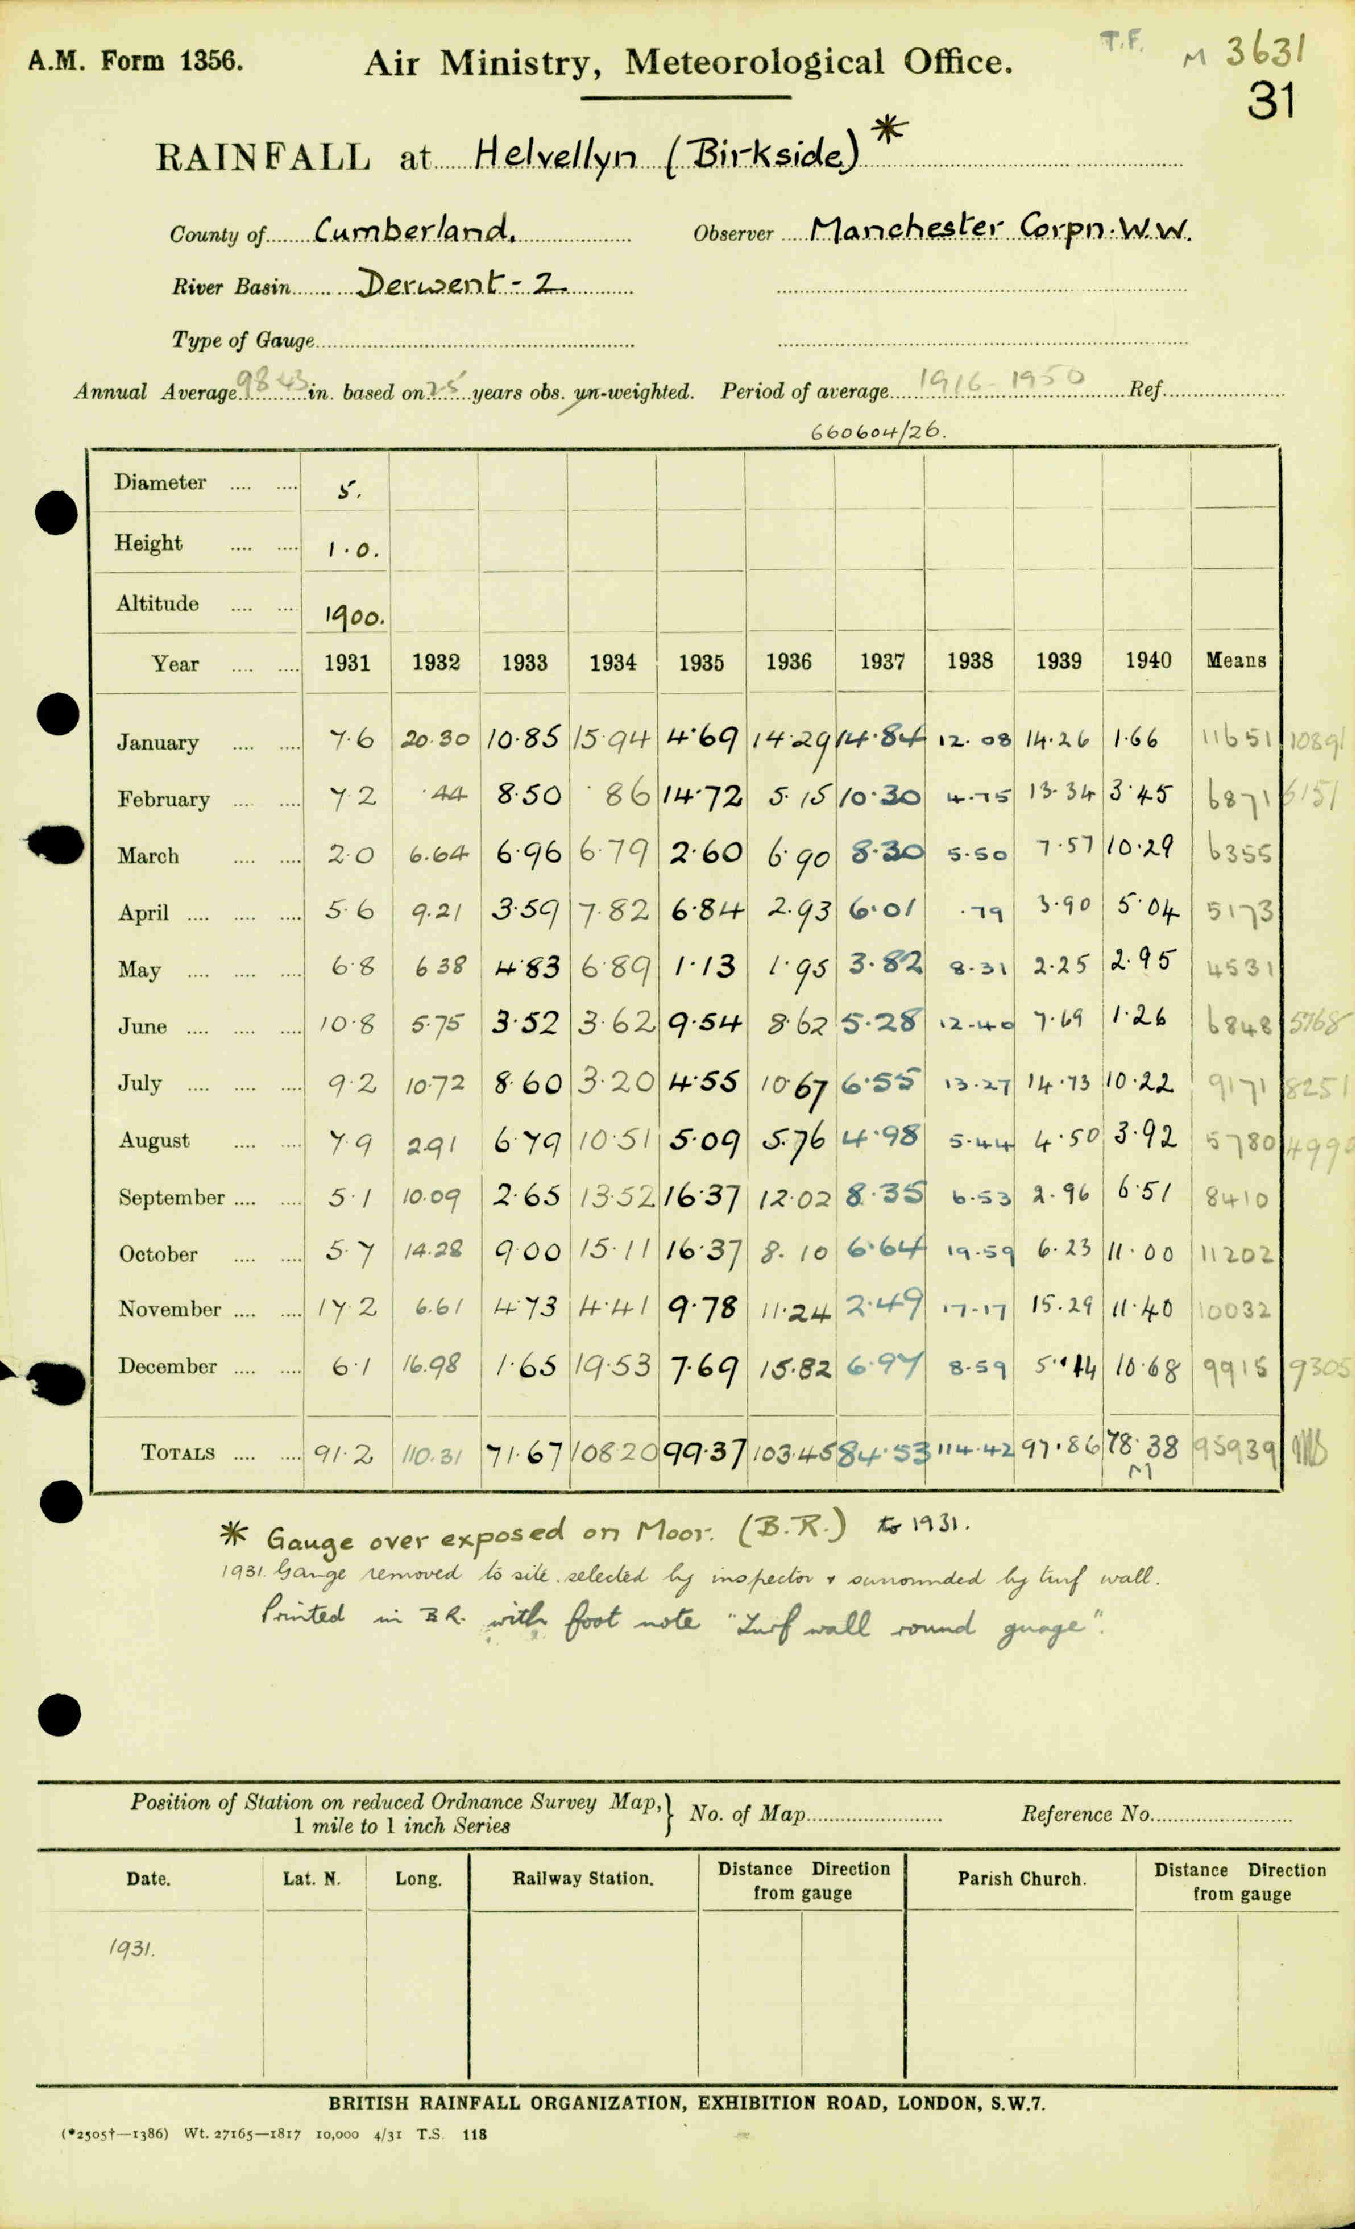 A.M. Form 1356. Air Ministry, Meteorological Office. T.F. M 3631
31
RAINFALL at Helvellyn (Birkside) *
County of Cumberland. Observer Manchester Corpn. W.W.
River Basin Derwent - 2
Type of Gauge
Annual Average 98.43 in. based on 25 years obs. un-weighted. Period of average 1916-1950 Ref.
660604/26.
Diameter 5.
Height 1.0.
Altitude 1900.
Year 1931 1932 1933 1934 1935 1936 1937 1938 1939 1940 Means
January 7.6 20.30 10.85 15.94 4.69 14.29 14.84 12.08 14.26 1.66 11651 10891
February 7.2 .44 8.50 .86 14.72 5.15 10.30 4.75 13.34 3.45 6871 6151
March 2.0 6.64 6.96 6.79 2.60 6.90 8.30 5.50 7.57 10.29 6355
April 5.6 9.21 3.59 7.82 6.84 2.93 6.01 .79 3.90 5.04 5173
May 6.8 6 38 4.83 6.89 1.13 1.95 3.82 8.31 2.25 2.95 4531
June 10.8 5.75 3.52 3.62 9.54 8.62 5.28 12.40 7.69 1.26 6848 5768
July 9.2 10.72 8.60 3.20 4.55 10.67 6.55 13.27 14.73 10.22 9171 8251
August 7.9 2.91 6.79 10.51 5.09 5.76 4.98 5.44 4.50 3.92 5780 4990
September 5.1 10.09 2.65 13.52 16.37 12.02 8.35 6.53 2.96 6.51 8410
October 5.7 14.28 9.00 15.11 16.37 8.10 6.64 19.59 6.23 11.00 11202
November 17.2 6.61 4.73 4.41 9.78 11.24 2.49 17.17 15.29 11.40 10032
December 6.1 16.98 1.65 19.53 7.69 15.82 6.97 8.59 5.14 10.68 9915 9305
TOTALS 91.2 110.31 71.67 108.20 99.37 103.45 84.53 114.42 97.86 78.38 95939
M
* Gauge over exposed on Moor. (B.R.) to 1931.
1931. Gauge removed to site selected by inspector & surrounded by turf wall.
Printed in B.R. with foot note "Turf wall round guage".
Position of Station on reduced Ordnance Survey Map, } No. of Map Reference No.
1 mile to 1 inch Series
Date. Lat. N. Long. Railway Station. Distance Direction from gauge Parish Church. Distance Direction from gauge
1931.
BRITISH RAINFALL ORGANIZATION, EXHIBITION ROAD, LONDON, S.W.7.
(*2505†—1386) Wt. 27165—1817 10,000 4/31 T.S. 118